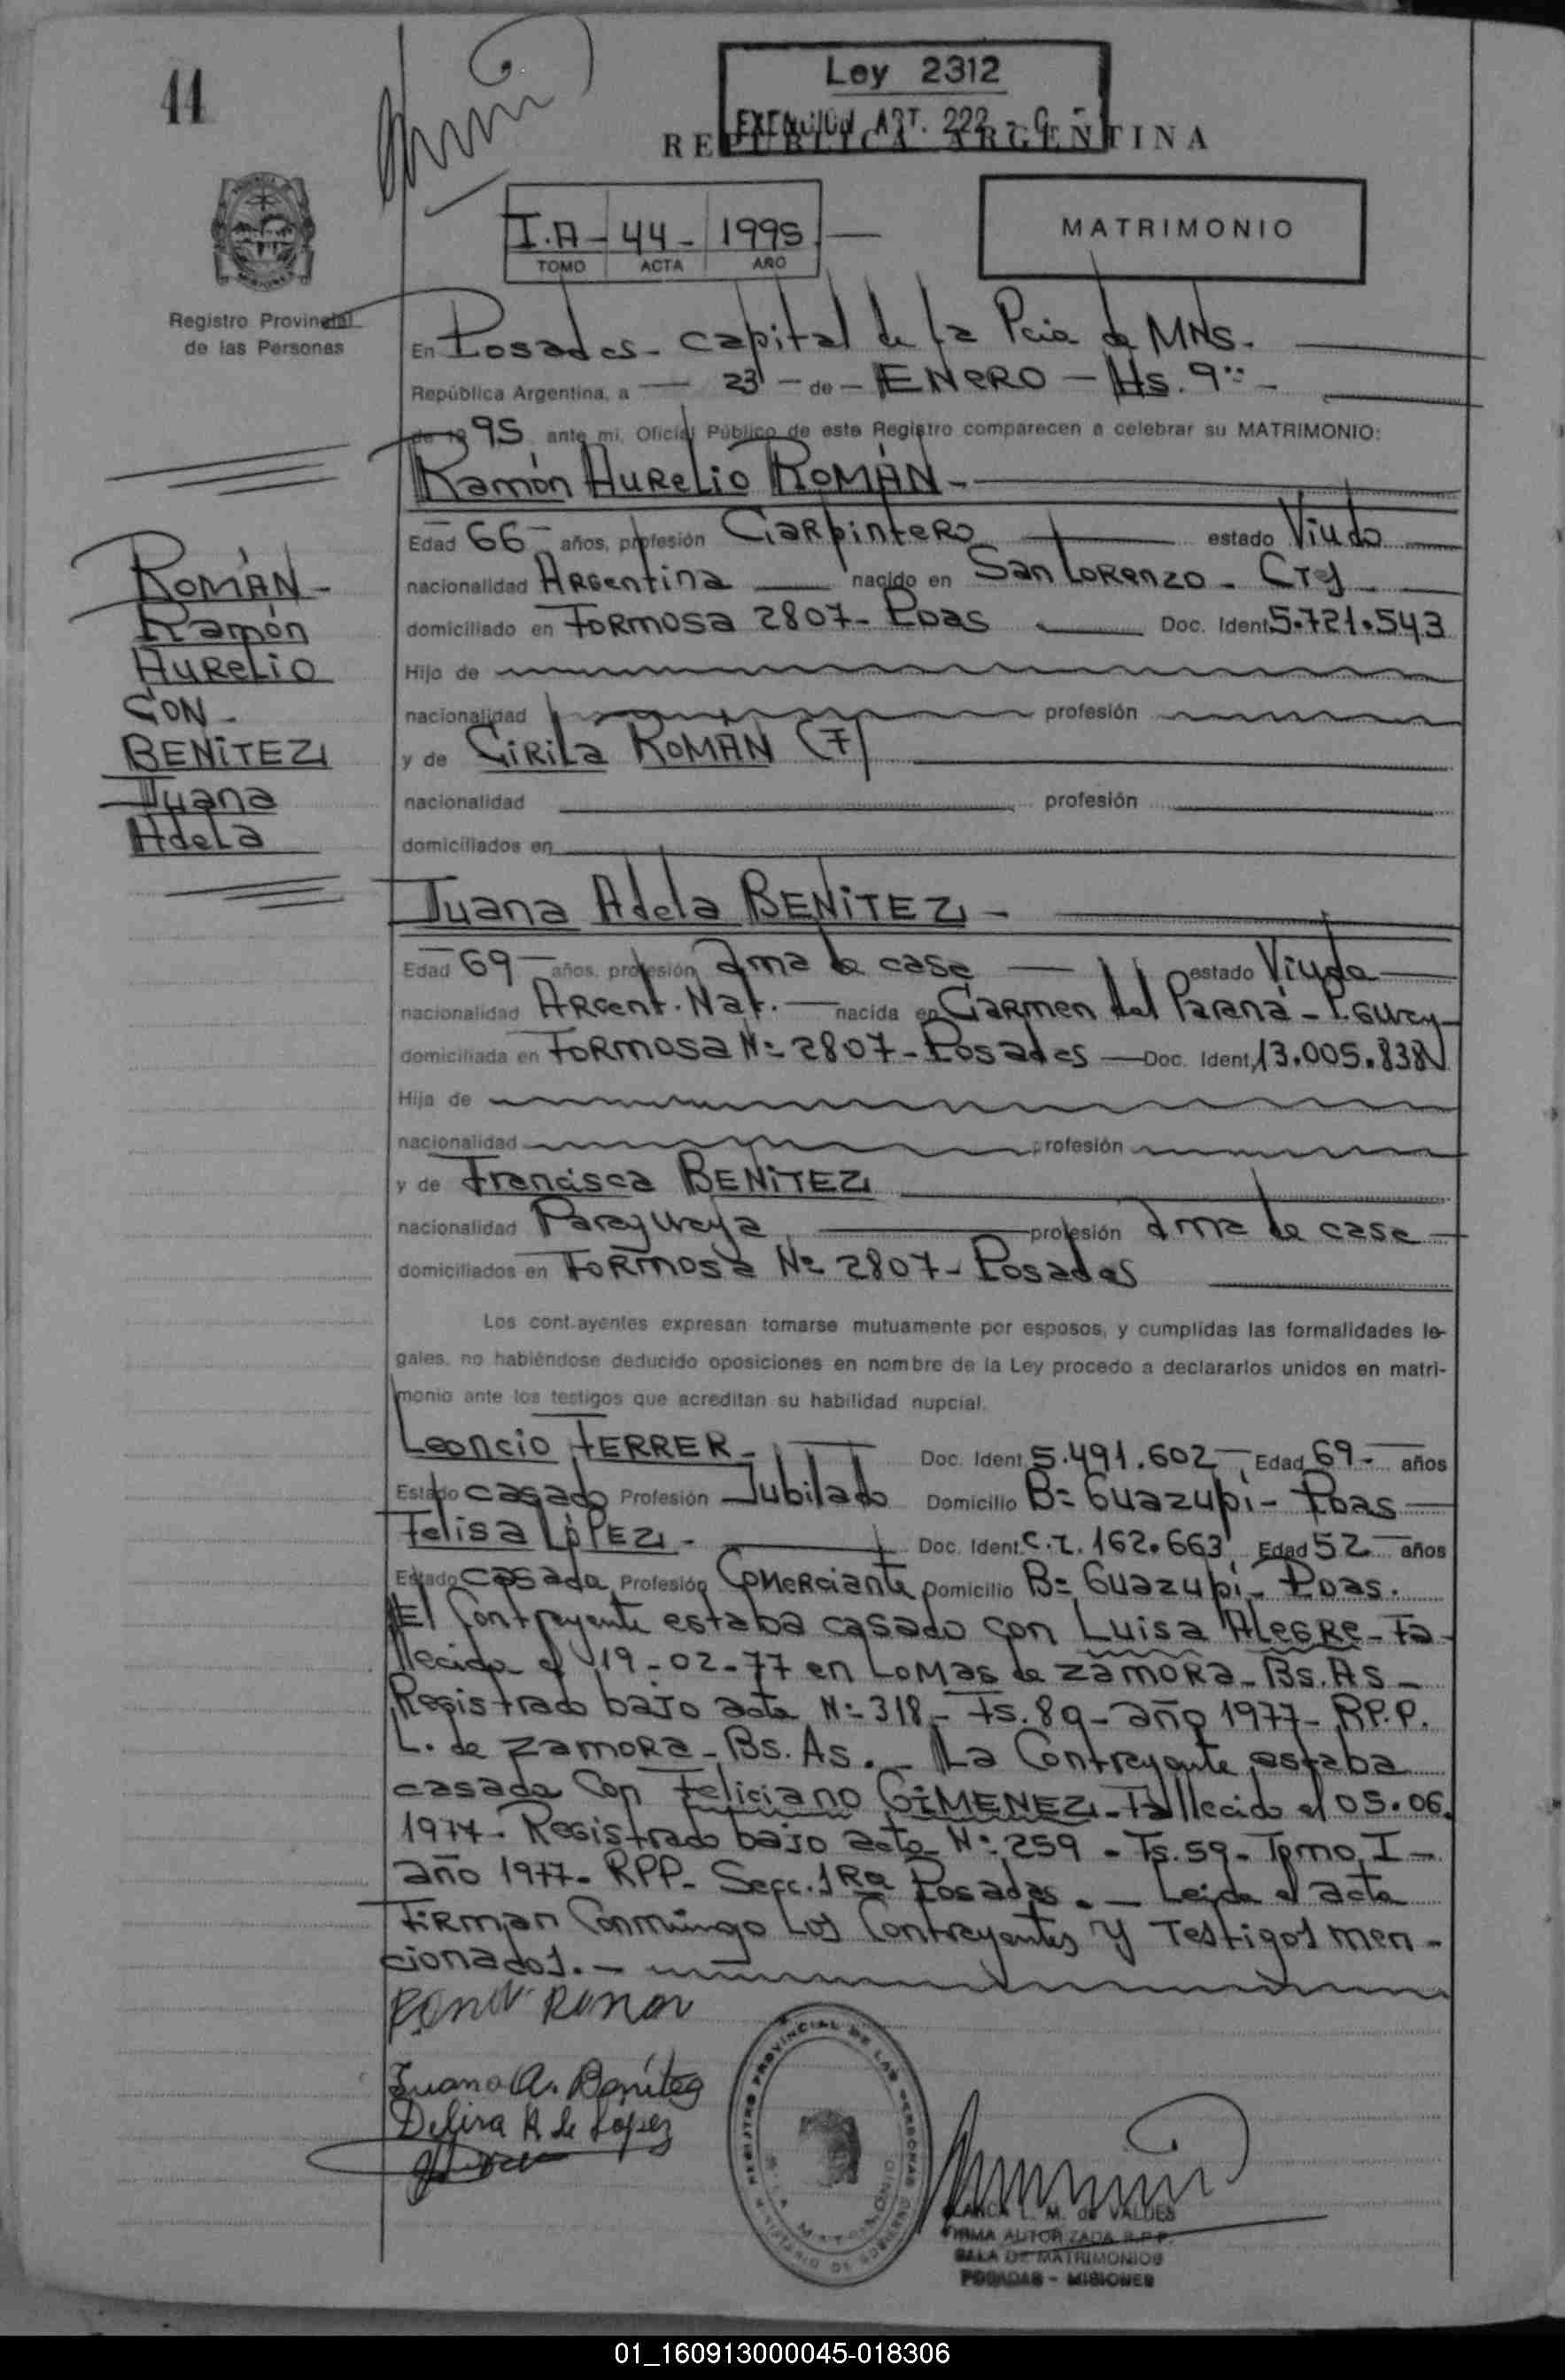 44
Ley 2312
EXENCION ART. 222 - C.
REPUBLICA ARGENTINA
I.A - 44 - 1995
TOMO ACTA AÑO
MATRIMONIO
Registro Provincial
de las Personas
En Posadas - capital de la Pcia de MNS.
República Argentina, a 23 - de - ENERO - Hs. 9
de 1995 ante mi, Oficial Público de este Registro comparecen a celebrar su MATRIMONIO:
Ramón AURELIO ROMÁN -
Edad 66 años, profesión Carpintero estado Viudo
nacionalidad Argentina nacido en San Lorenzo - Ctes
domiciliado en Formosa 2807 - Pdas Doc. Ident 5.721.543
Hijo de
nacionalidad profesión
y de Cirila ROMÁN (7)
nacionalidad profesión
domiciliados en
ROMÁN -
Ramón
AURELIO
CON -
BENITEZ
Juana
Adela
Juana Adela BENITEZ -
Edad 69 años, profesión Ama de casa estado Viuda
nacionalidad Argent. Nat. nacida en Carmen del Paraná - Pguay
domiciliada en Formosa Nº 2807 - Posadas Doc. Ident, 13.005.838
Hija de
nacionalidad profesión
y de Francisca BENITEZ
nacionalidad Paraguaya profesión Ama de casa
domiciliados en Formosa Nº 2807 - Posadas
Los contrayentes expresan tomarse mutuamente por esposos, y cumplidas las formalidades le-
gales, no habiéndose deducido oposiciones en nombre de la Ley procedo a declararlos unidos en matri-
monio ante los testigos que acreditan su habilidad nupcial.
Leoncio FERRER - Doc. Ident 5.491.602 Edad 69 - años
Estado casado Profesión Jubilado Domicilio Bº Guazupí - Pdas
Felisa LÓPEZ - Doc. Ident. C.I. 162.663 Edad 52 años
Estado casada Profesión Comerciante Domicilio Bº Guazupí - Pdas.
El Contrayente estaba casado con Luisa ALEGRE - Fa-
llecida el 19-02-77 en Lomas de Zamora - Bs. As -
Registrado bajo acta Nº 318 - Fs. 89 - año 1977 - RP.P.
L. de Zamora - Bs. As. - La Contrayente estaba
casada con Feliciano GIMENEZ - Fallecido el 05.06.
1977 - Registrado bajo acta Nº 259 - Fs. 59 - Tomo I -
año 1977 - RPP - Secc. 1Ra Posadas. - Leida el acta
Firman Conmingo los Contrayentes y Testigos men-
cionados. -
Juana A. Benítez
Delira R de Lopez
REGISTRO PROVINCIAL DE LAS PERSONAS
BLANCA L. M. de VALDES
FIRMA AUTORIZADA R.P.P.
SALA DE MATRIMONIOS
POSADAS - MISIONES
01_160913000045-018306